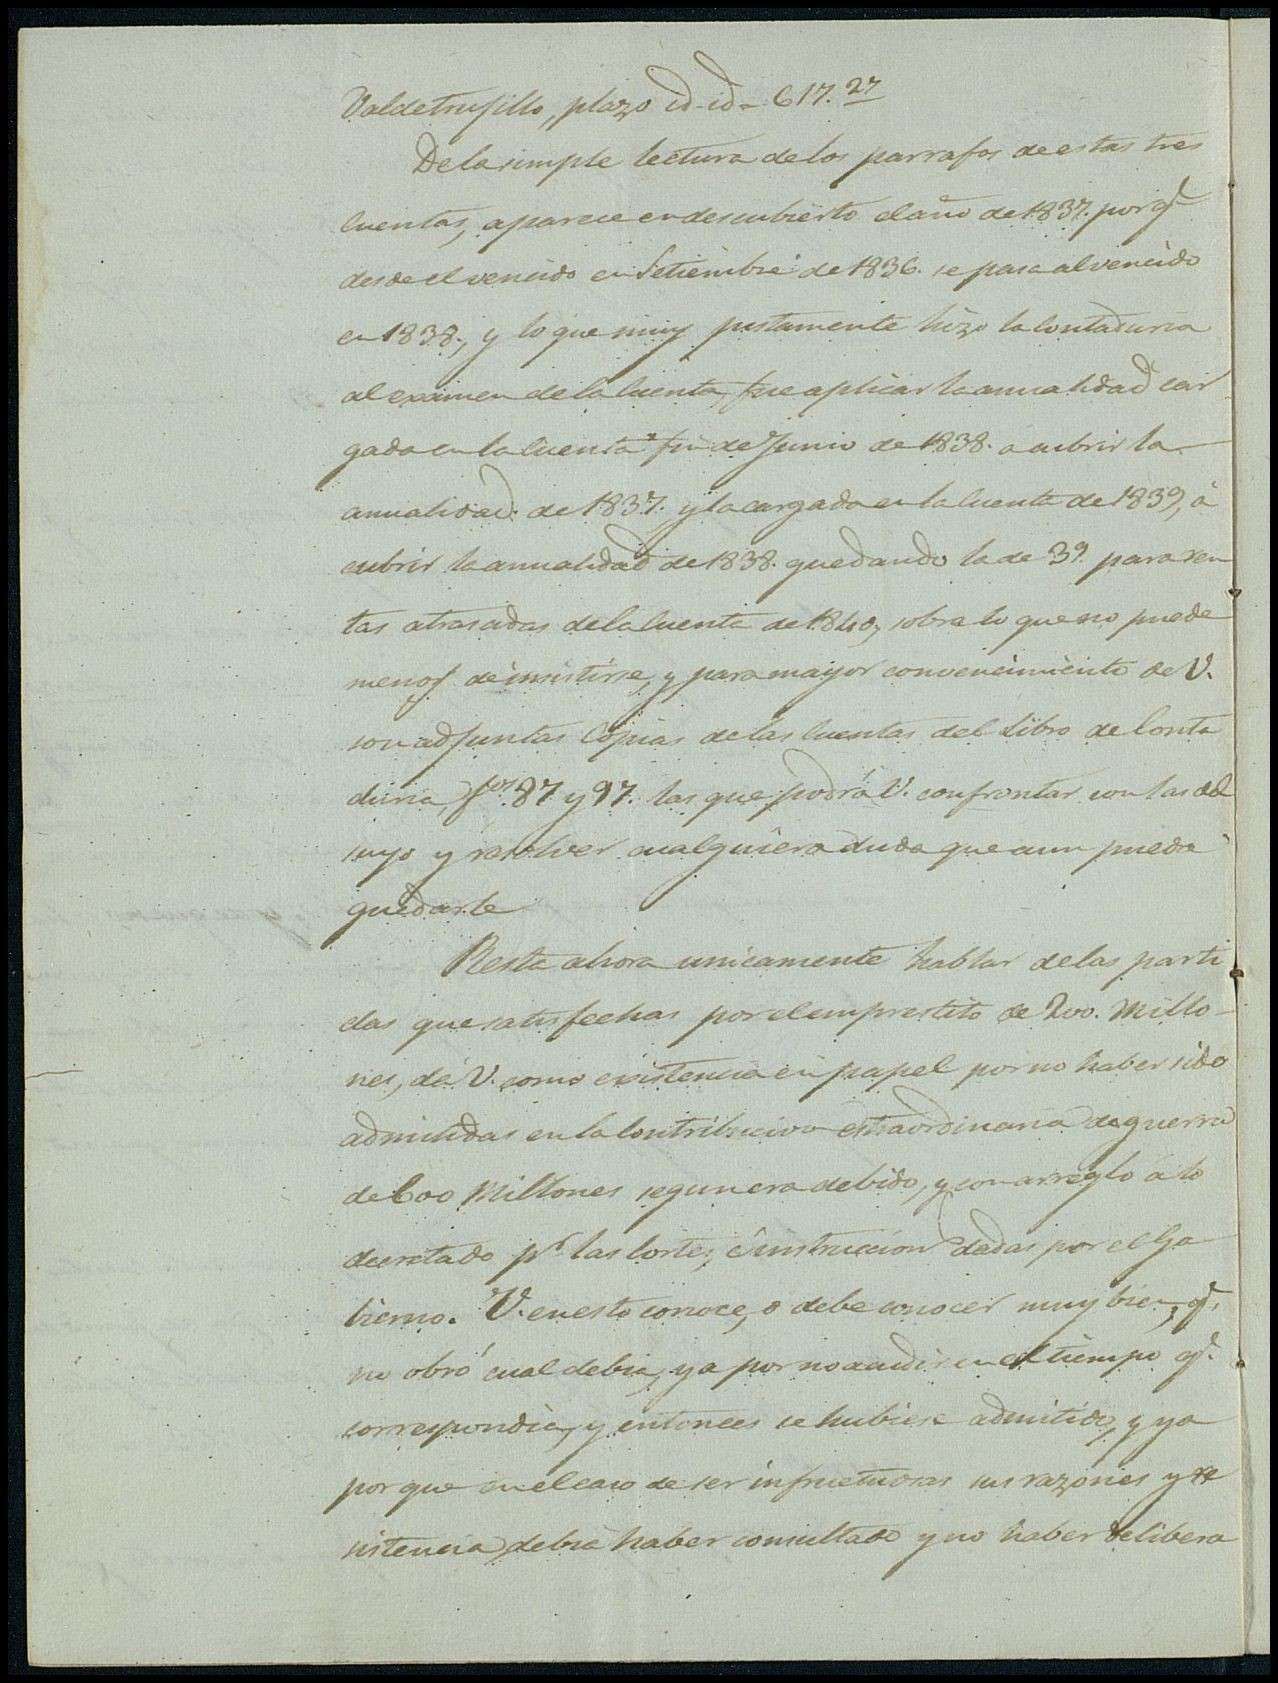 Valdetrugillo, plazo id. id. 617.27
De la simple lectura de los parrafos de estas tres
cuentas, aparece en descubierto el año de 1837. porq.e
desde el vencido en Setiembre de 1836. se pasa al vencido
en 1838., y lo que muy justamente hizo la Contaduria
al examen de la cuenta, fue aplicar la anualidad car
gada en la cuenta fin de Junio de 1838. a cubrir la
anualidad de 1837. y la cargada en la cuenta de 1839, á
cubrir la anualidad de 1838. quedando la de 39. para ren
tas atrasadas de la cuenta de 1840, sobre lo que no puede
menos de insistirse, y para mayor convencimiento de V.
son adjuntas copias de las cuentas del libro de Conta
duria f.os 87 y 97. las que podrá V. confrontar con las del
suyo y resolver cualquiera duda que aun pueda
quedarle
Resta ahora unicamente hablar de las parti
das que satisfechas por el emprestito de 200. Millo-
nes, dá V. como existencia en papel por no haber sido
admitidas en la Contribucion estraordinaria de guerra
de 600 Millones segun era debido, y con arreglo á lo
decretado p.r las Cortes, é instruccion dadas por el Go
bierno. V. en esto conoce, o debe conocer muy bien, q.e
no obró cual debia, ya por no acudir en el tiempo q.e
correspondia, y entonces se hubiese admitido, y ya
por que en el caso de ser infructuosas sus razones y re
sistencia debia haber consultado y no haber delibera